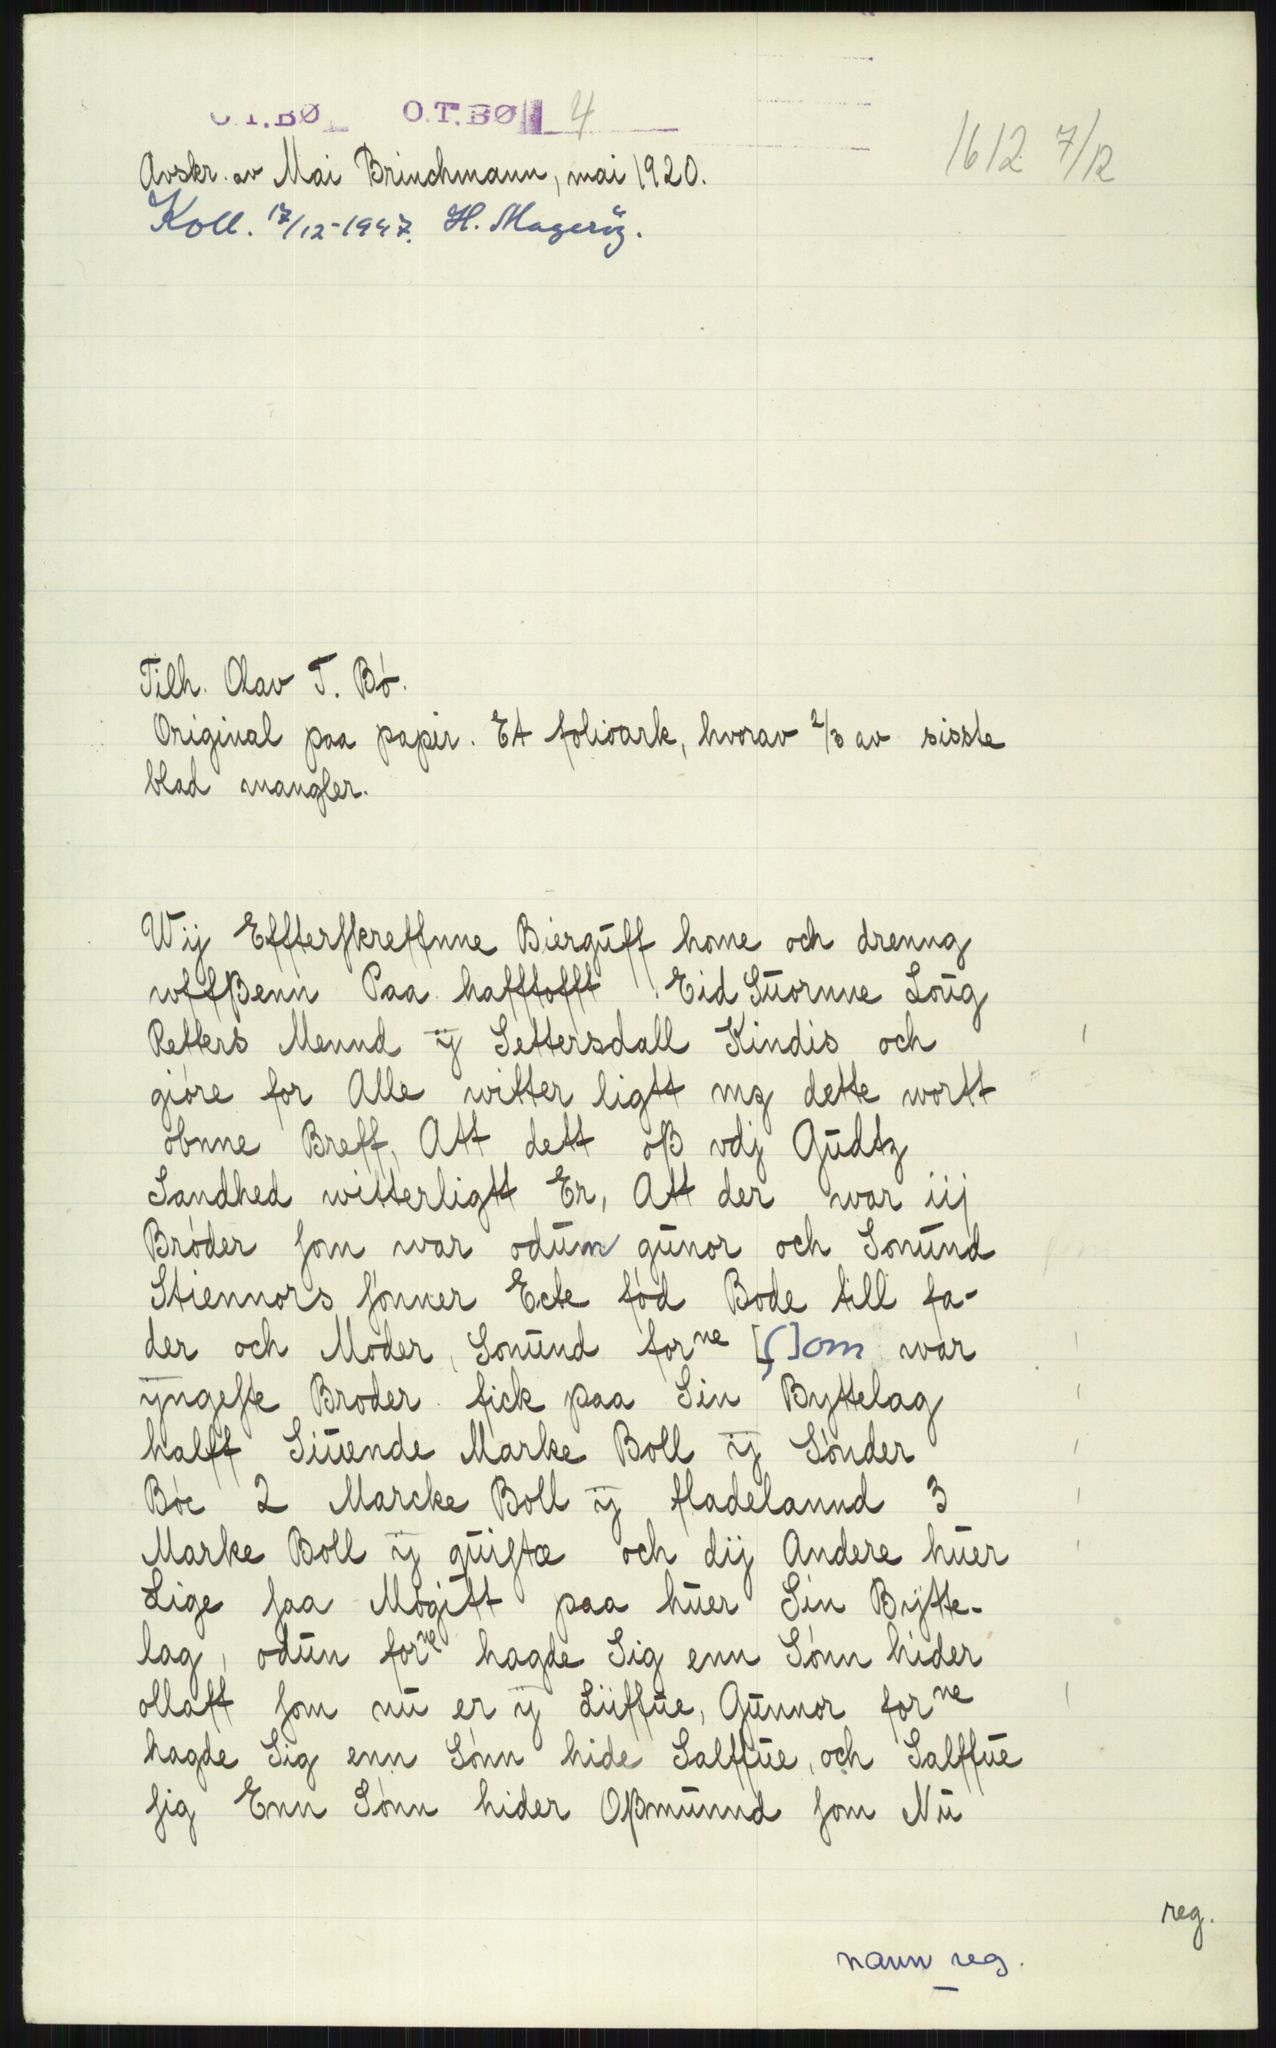 O.T.BØ O.T.BØ 4
1612 7/12
Avskr. av Mai Brinchmann, mai 1920.
Koll. 17/12-1947. H. Magerøy.
Tilh. Olav T. Bø.
Original paa papir. Et folioark, hvorav 2/3 av sisste
blad mangler.
Wij Effterſkreffnne Bierguff home och drenng
wffßenn Paa hafftofft Eid Suornne Loug
Retters Mennd ÿ Settersdall Kindis och
gióre for Alle witter ligtt mz dette wortt
obnne Breff, Att dett oß vdj Gudtz
Sandhed witterligtt Er, Att der war iij
Bróder ſom war odum gunor och Somund
Stiennors ſónner Ecte fód Bode till fa-
der och Moder, Somund forne [ſ]om war
ÿngeſte Broder fick paa Sin Byttelag
halff Siuende Marke Boll ÿ Sónder
Bóe 2 Marcke Boll ÿ fladelannd 3
Marke Boll ÿ quiſtæ och dij Andere huer
Lige ſaa Mógitt paa huer Sin Bÿtte-
lag, odun forne hagde Sig enn Sónn hider
ollaff ſom nu er ÿ Liiffue, Gunnor forne
hagde Sig enn Sónn hide Salffue, och Salffue
ſig Enn Sónn hider Oßmunnd ſom Nu
reg.
navn reg.